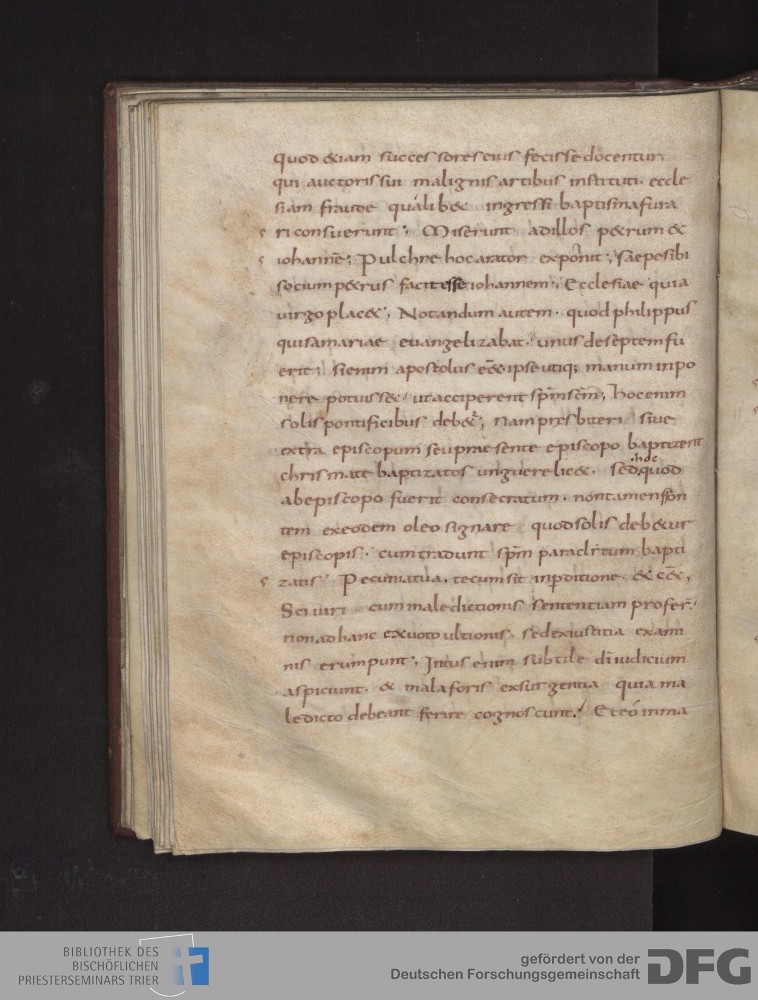 quod &iam succes sores eius fecisse docentur.
qui auctoris sui malignis artibus instituti. eccle
siam fraude qualib& ingressi baptisma fura
ri consuerunt; Miserunt ad illos p&rum &
iohanne; Pulchre hoc arator exponit; saepe sibi
socium p&rus facit esse iohannem; Ecclesiae quia
virgo plac&; Notandum autem. quod philippus
qui samariae euangelizabat. unus de septem fu
erit; Si enim apostolus ess& ipse utiq; manum inpo
nere potuiss& ut acciperent spm scm; hoc enim
solis pontificibus deb&; Nam presbiteri siue
extra episcopum seu praesente episcopo baptizent
chrismate baptizatos unguere lic&. sed quod
hoc
ab episcopo fuerit consecratum. non tamen fron
tem ex eodem oleo signare quod solis deb&ur
episcopis. cum tradunt spm paraclitum bapti
zatis; Pecunia tua. tecum sit in pditione & c&.
Sci uiri cum maledictionis sententiam profer
non ad hanc ex uoto ultionis. sed ex iustitia exami
nis erumpunt; Intus enim subtile di iudicium
aspiciunt. & mala foris exsurgentia quia ma
ledicto debeant ferire cognoscunt; Et eo in ma
BIBLIOTHEK DES
BISCHÖFLICHEN
PRIESTERSEMINARS TRIER
gefördert von der
Deutschen Forschungsgemeinschaft
DFG